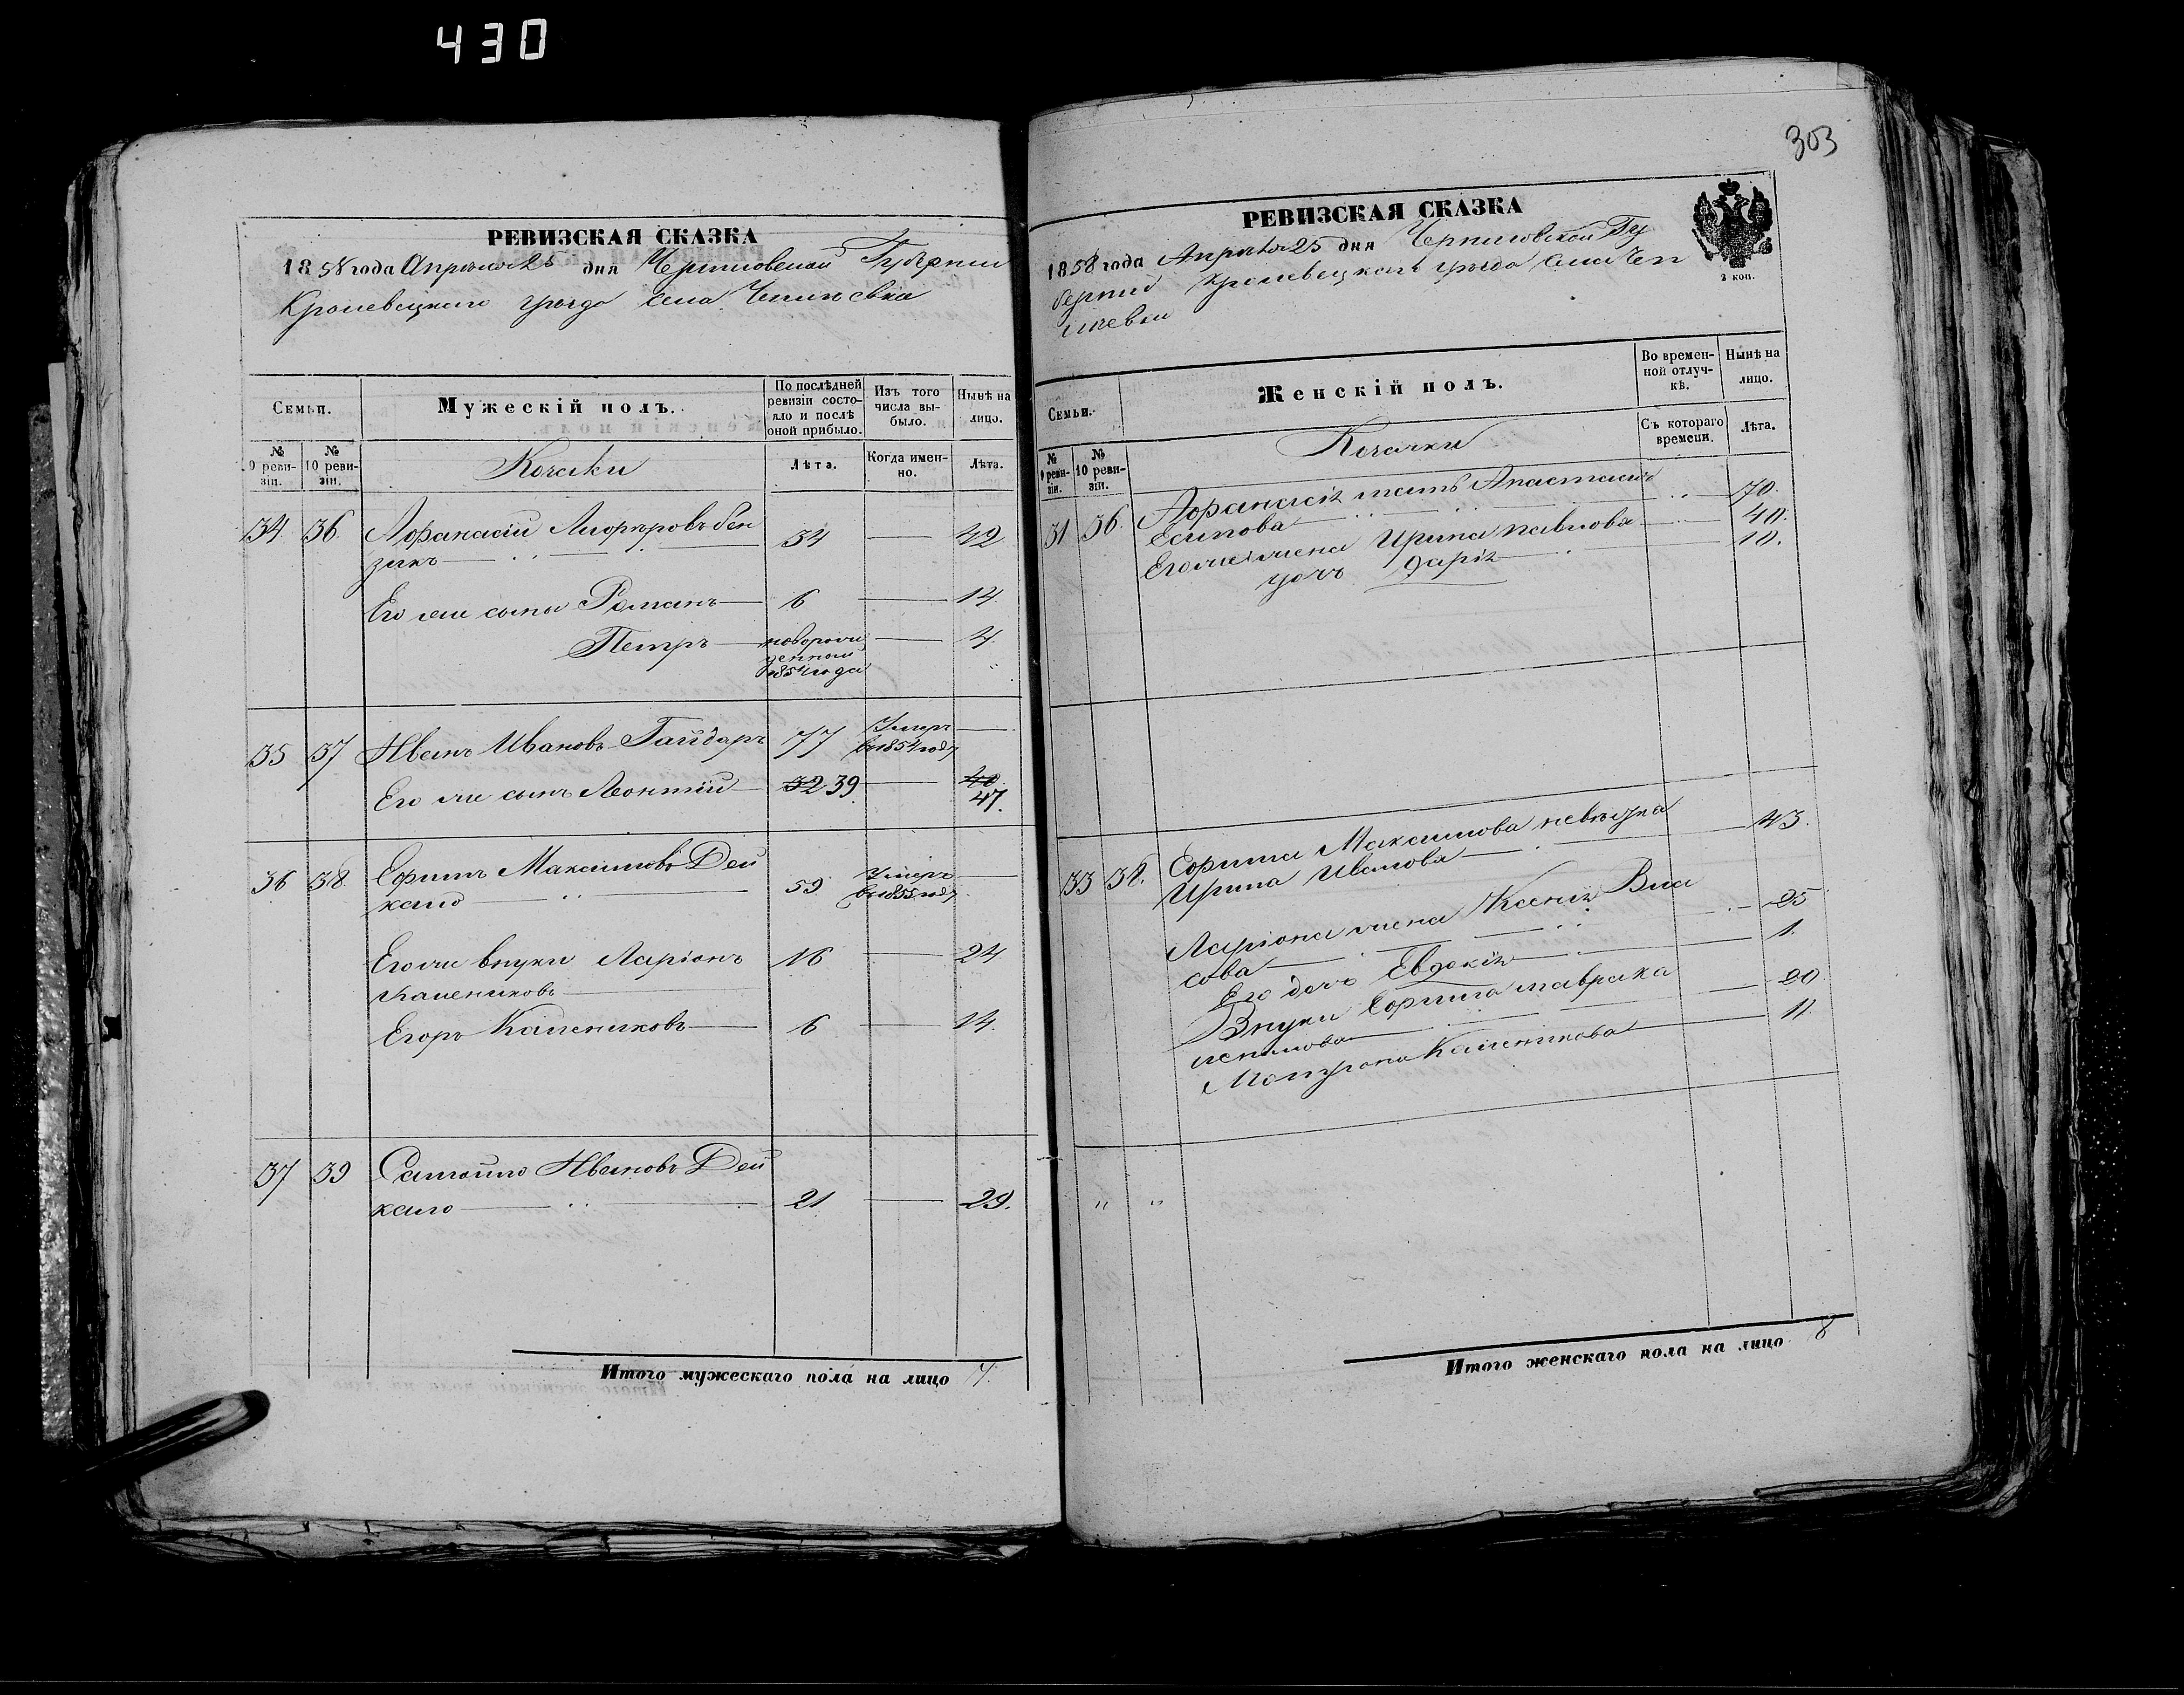 430
РЕВИЗСКАЯ СКАЗКА
1858 года Апреля 25 дня Черниговской Губернии
Кролевецкаго уезда села
Семьи.
Мужескій полъ.
По послѣдней ревизіи состояло и послѣ оной прибыло.
Изъ того числа выбыло.
Нынѣ на лицо.
№ 9 ревизіи.
№ 10 ревизіи.
Козаки
Лѣта.
Когда именно.
Лѣта.
34. 36. Афанасій 34 — 42
зикъ
Его же сыны Романъ 6 — 14
Петръ новорож — 4
денный
1854 года
35 37 Иванъ Ивановъ Гайдаръ 77 Умеръ —
въ 1854 году
Его же сынъ Леонтій 32 39 — 40
47.
36 38. Ефимъ Максимовъ Дей 59 Умеръ —
кало въ 1855 году
Его же внуки Ларіонъ 16 — 24
Калениковъ
Егоръ Калениковъ 6 — 14.
37 39 Самойло Ивановъ Дей
кало 21 — 29.
Итого мужескаго пола на лицо 7.
303
РЕВИЗСКАЯ СКАЗКА
1858 года Апреля 25 дня Черниговской Гу
берніи Кролевецкаго уезда села
2 коп.
Семьи.
Женскій полъ.
Во временной отлучкѣ.
Нынѣ на лицо.
№ 9 ревизіи.
№ 10 ревизіи.
Козачки
Съ котораго времени.
Лѣта.
31 36. Афанасія мать Анастасія
Есипова 70.
Его же жена Ирина Павлова 40.
дочь Дарія 10.
33 38. Ефима Максимова невѣстка
Ирина Иванова 43.
Ларіона жена Ксенія Вла
сова 25
Его дочь Евдокія 1.
Внуки Ефима Ка
леникова 20
Каленикова 11.
" "
Итого женскаго пола на лицо 8